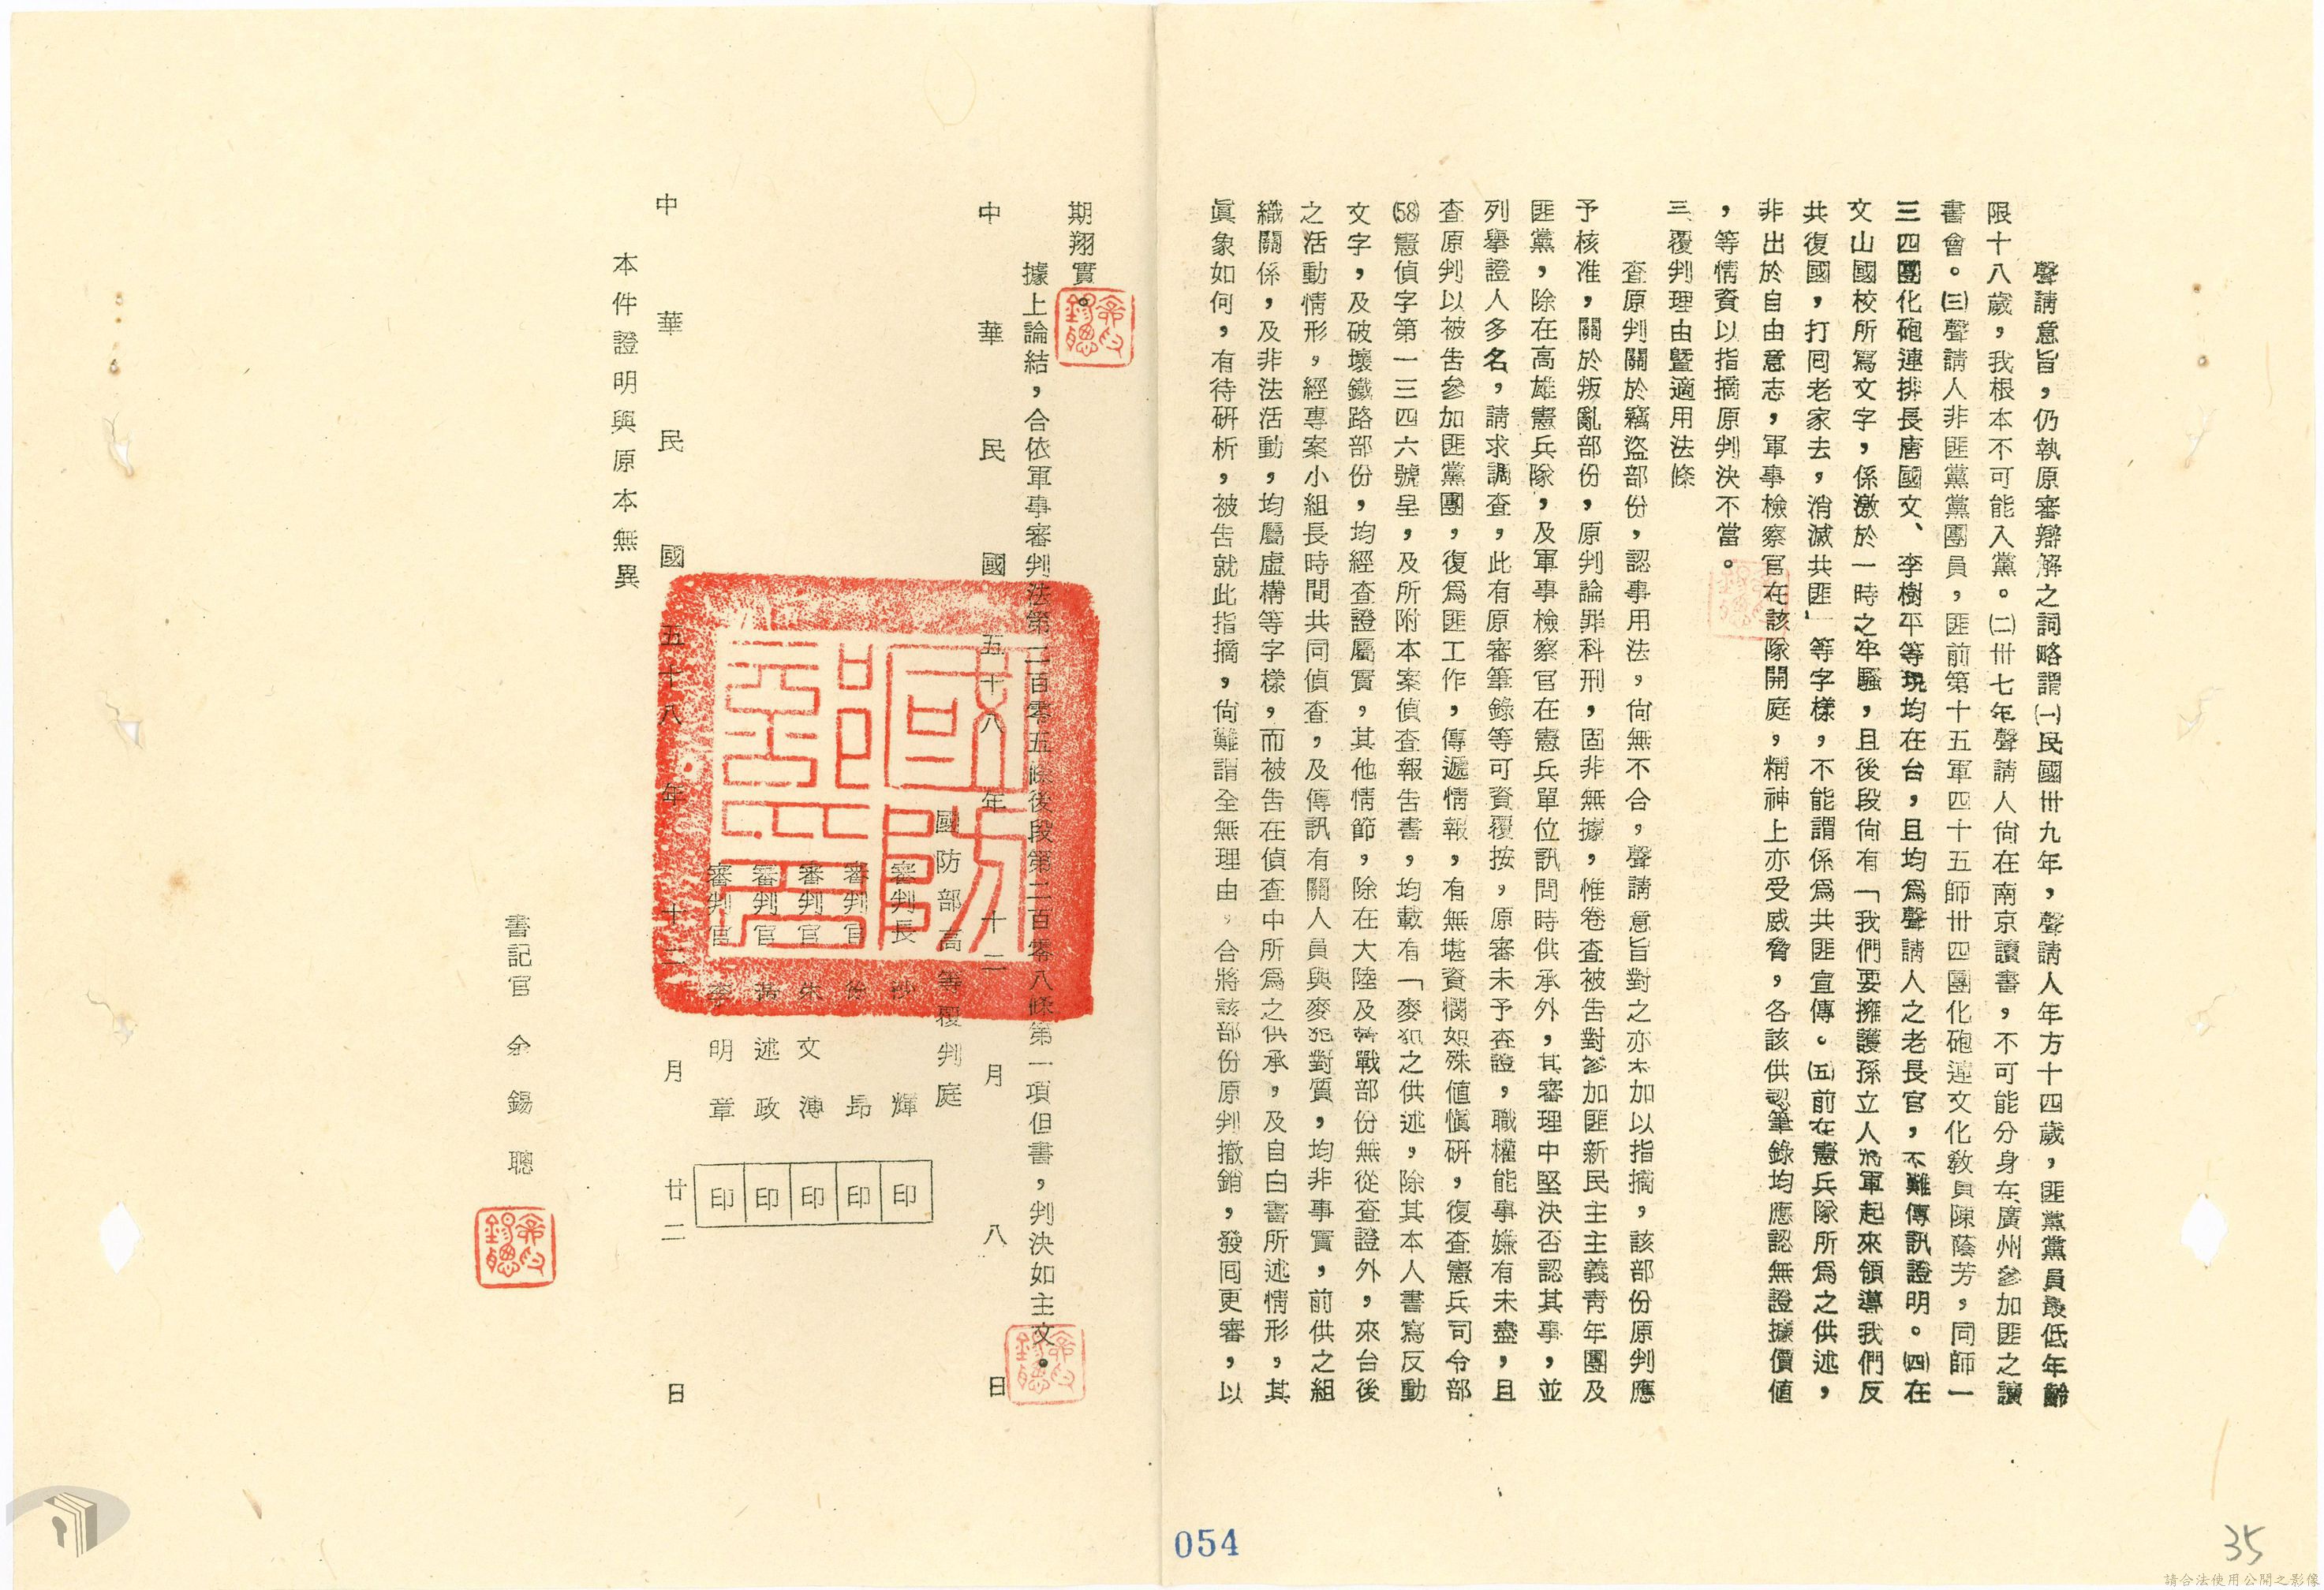 聲請意旨,仍執原審辯解之詞略謂㈠民國卅九年,聲請人年方十四歲,匪黨黨員最低年齡
限十八歲,我根本不可能入黨。㈡卅七年聲請人尙在南京讀書,不可能分身在廣州參加匪之讀
書會。㈢聲請人非匪黨黨團員,匪前第十五軍四十五師卅四團化砲連文化敎員陳蔭芳,同師一
三四團化砲連排長唐國文、李樹平等現均在台,且均爲聲請人之老長官,不難傳訊證明。㈣在
文山國校所寫文字,係激於一時之牢騷,且後段尙有「我們要擁護孫立人將軍起來領導我們反
共復國,打囘老家去,消滅共匪」等字樣,不能謂係爲共匪宣傳。㈤前在憲兵隊所爲之供述,
非出於自由意志,軍事檢察官在該隊開庭,精神上亦受威脅,各該供認筆錄均應認無證據價値
,等情資以指摘原判決不當。
三、覆判理由暨適用法條
查原判關於竊盜部份,認事用法,尙無不合,聲請意旨對之亦未加以指摘,該部份原判應
予核准,關於叛亂部份,原判論罪科刑,固非無據,惟卷查被告對參加匪新民主主義靑年團及
匪黨,除在高雄憲兵隊,及軍事檢察官在憲兵單位訊問時供承外,其審理中堅決否認其事,並
列舉證人多名,請求調查,此有原審筆錄等可資覆按,原審未予查證,職權能事嫌有未盡,且
查原判以被告參加匪黨團,復爲匪工作,傳遞情報,有無堪資憫如殊値愼硏,復查憲兵司令部
(58)憲偵字第一三四六號呈,及所附本案偵查報告書,均載有「麥犯之供述,除其本人書寫反動
文字,及破壞鐵路部份,均經查證屬實,其他情節,除在大陸及韓戰部份無從查證外,來台後
之活動情形,經專案小組長時間共同偵查,及傳訊有關人員與麥犯對質,均非事實,前供之組
織關係,及非法活動,均屬虛構等字樣,而被告在偵查中所爲之供承,及自白書所述情形,其
眞象如何,有待硏析,被告就此指摘,尙難謂全無理由,合將該部份原判撤銷,發囘更審,以
期翔實。
據上論結,合依軍事審判法第二百零五條後段第二百零八條第一項但書,判決如主文。
中華民國五十八年十二月八日
國防部高等覆判庭
審判長 輝
審判官 昂
審判官 朱文溥
審判官 述政
審判官 李明章
印
印
印
印
印
中華民國五十八年十二月廿二日
本件證明與原本無異
書記官 余錫聰
國防部印
054
35
請合法使用公開之影像